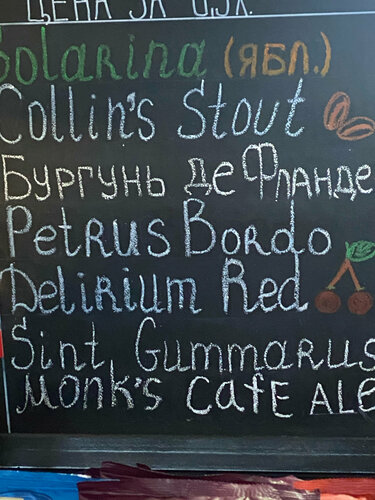 ЦЕНА ЗА 0,5л.
Solarina (ЯБЛ.)
Collin's Stout
Бургунь де Фланде
Petrus Bordo
Delirium Red
Sint Gummarus
Monk's CAFE ALE